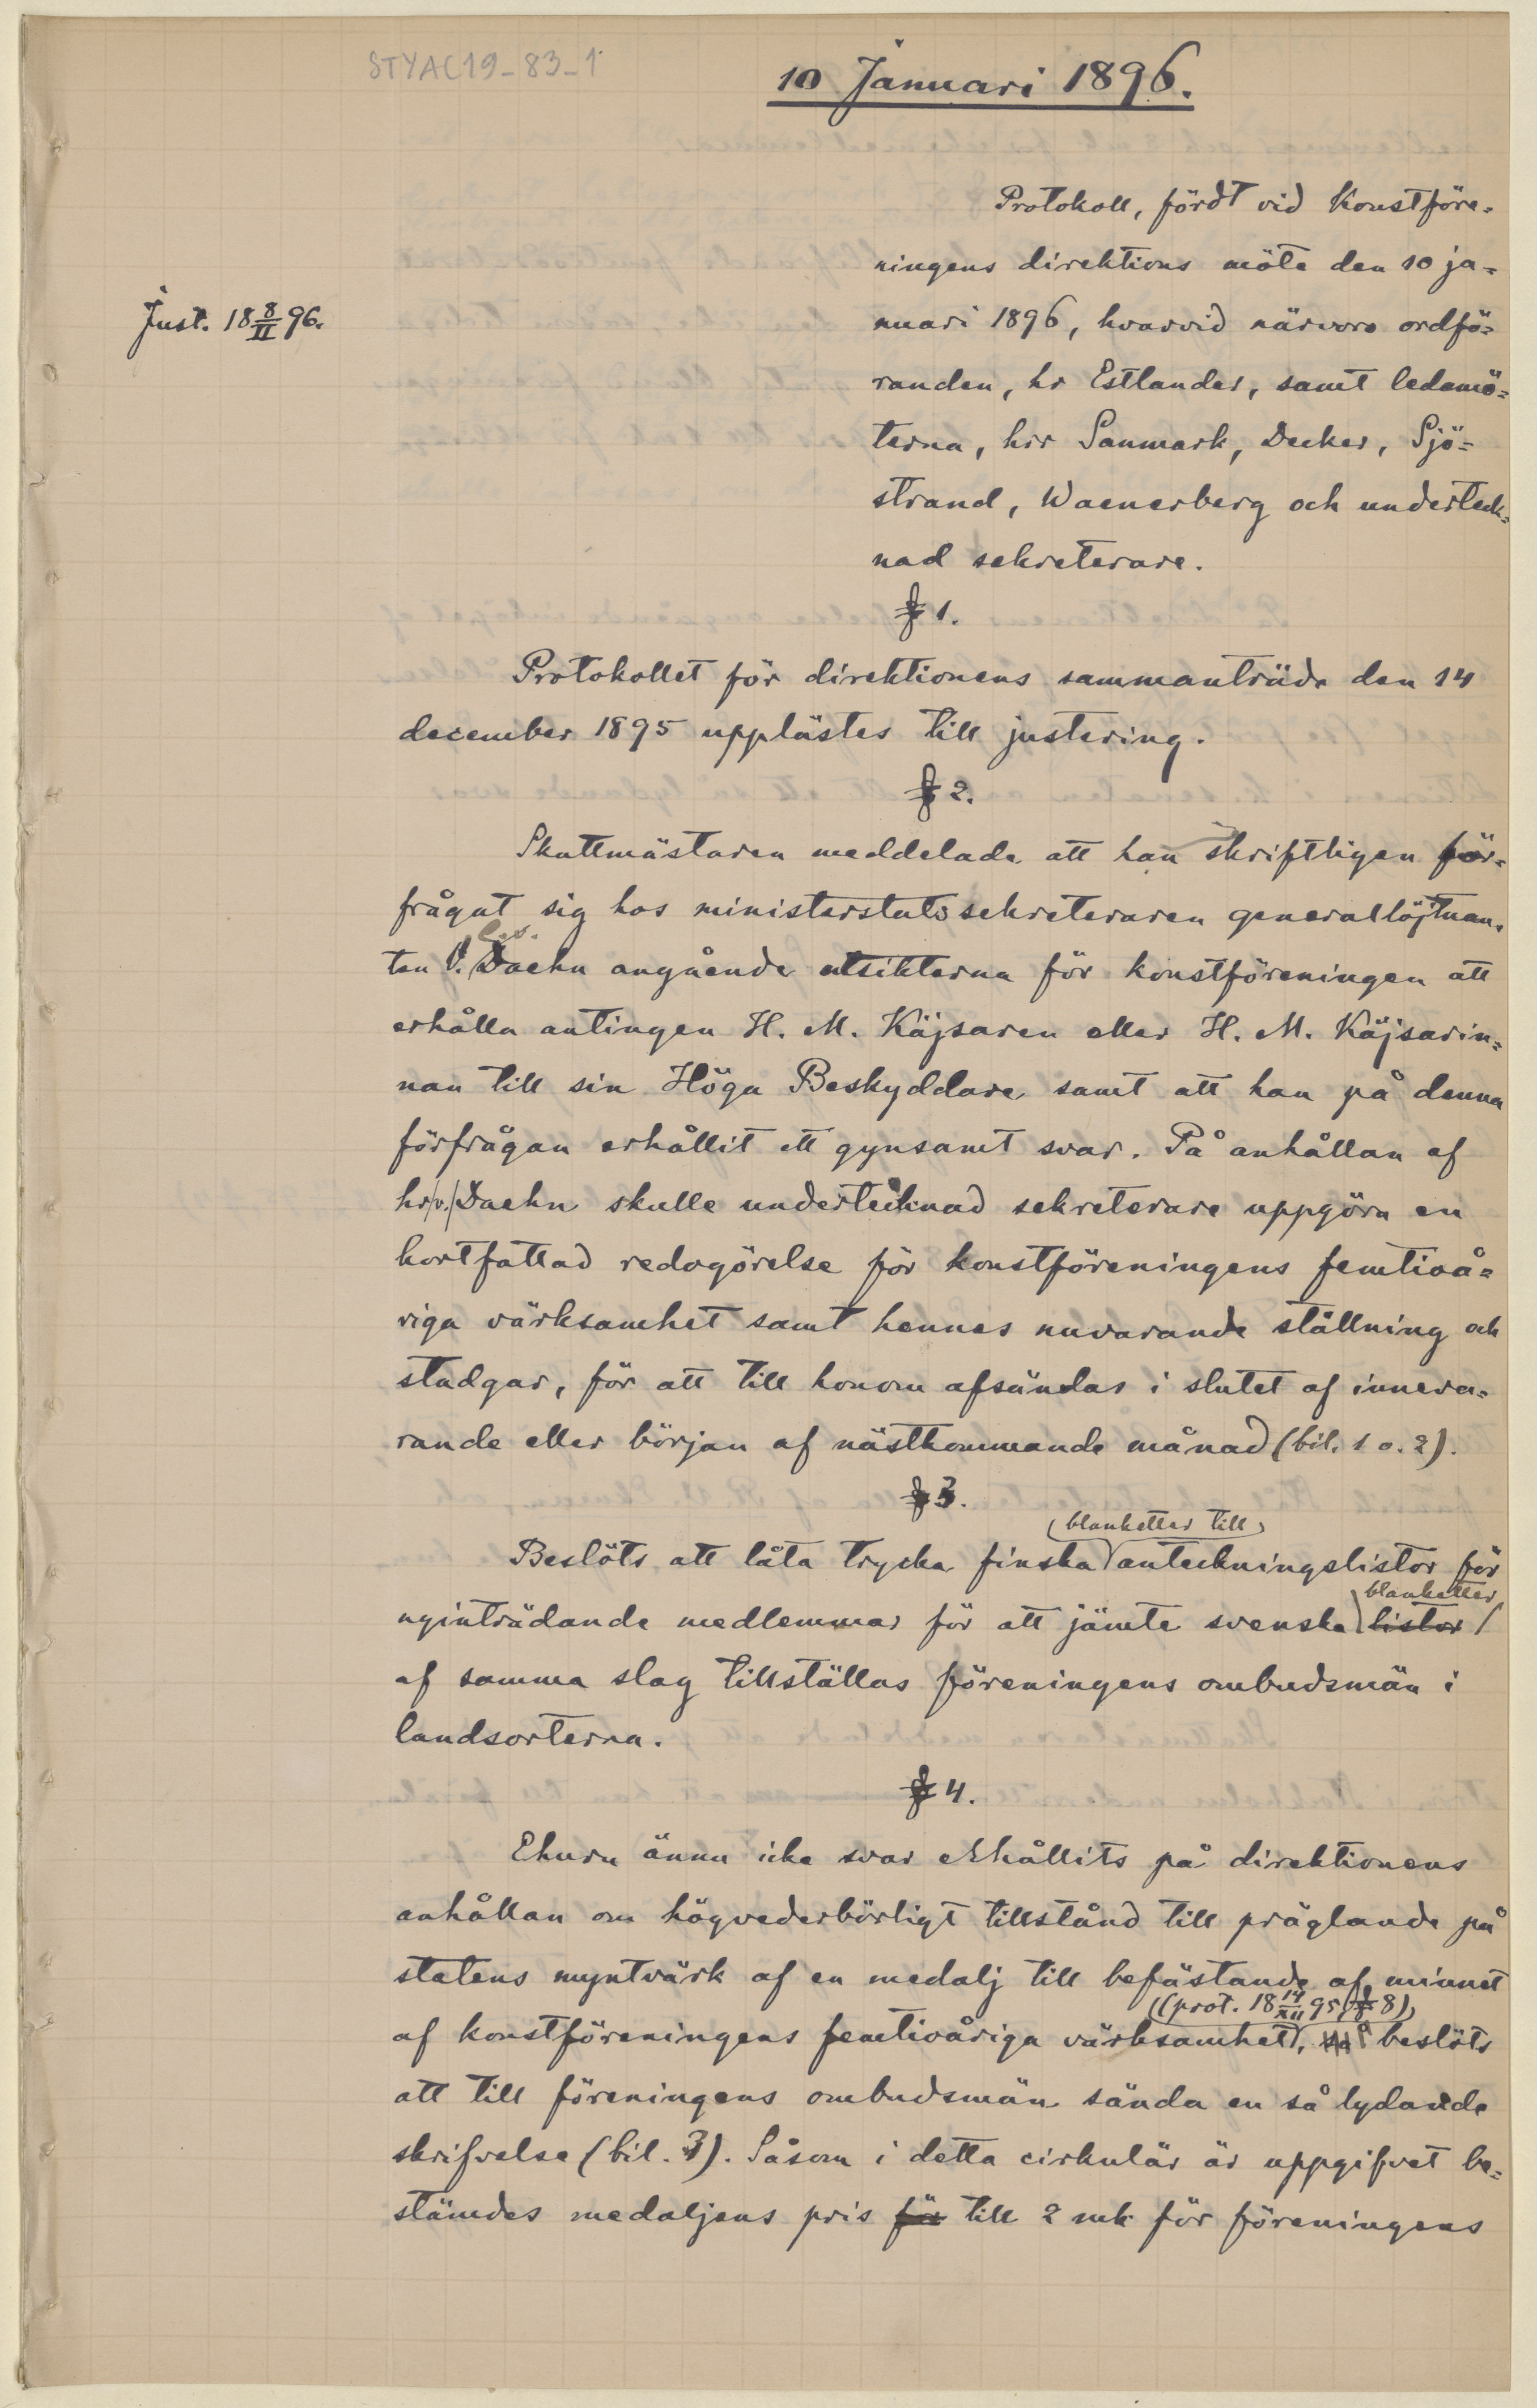 STYAC19_83_1
10 Januari 1896.
Protokoll, fördt vid Konstföre=
ningens direktions möte den 10 ja=
Just. 18 8/II 96.
nuari 1896, hvarvid närvoro ordfö=
randen, hr Estlander, samt ledamö=
terna, hrr Sanmark, Decker, Sjö=
strand, Waenerberg och underteck=
nad sekreterare.
§ 1.
Protokollet för direktionens sammanträde den 14
december 1895 upplästes till justering.
§ 2.
Skattmästaren meddelade att han skriftligen för=
frågat sig hos ministerstatssekreteraren generallöjtnan=
ten V. Daehn angående utsikterna för konstföreningen att
erhålla antingen H. M. Käjsaren eller H. M. Käjsarin=
nan till sin Höga Beskyddare, samt att han på denna
förfrågan erhållit ett gynsamt svar. På anhållan af
hr v. Daehn skulle undertecknad sekreterare uppgöra en
kortfattad redogörelse för konstföreningens femtioå=
riga värksamhet samt hennes nuvarande ställning och
stadgar, för att till honom afsändas i slutet af inneva=
rande eller början af nästkommande månad (bil. 1 o. 2).
§ 3.
blanketter till
Beslöts att låta trycka finska anteckningslistor för
blanketter
nyinträdande medlemmar för att jämte svenska listor
af samma slag tillställas föreningens ombudsmän i
landsorterna.
§ 4.
Ehuru ännu icke svar erhållits på direktionens
anhållan om högvederbörligt tillstånd till präglande på
statens myntvärk af en medalj till befästande af minnet
(prot. 18 14/XII 95 § 8)
af konstföreningens femtioåriga värksamhet, så beslöts
att till föreningens ombudsmän sända en så lydande
skrifvelse (bil. 3). Såsom i detta cirkulär är uppgifvet be=
stämdes medaljens pris för till 2 mk för föreningens